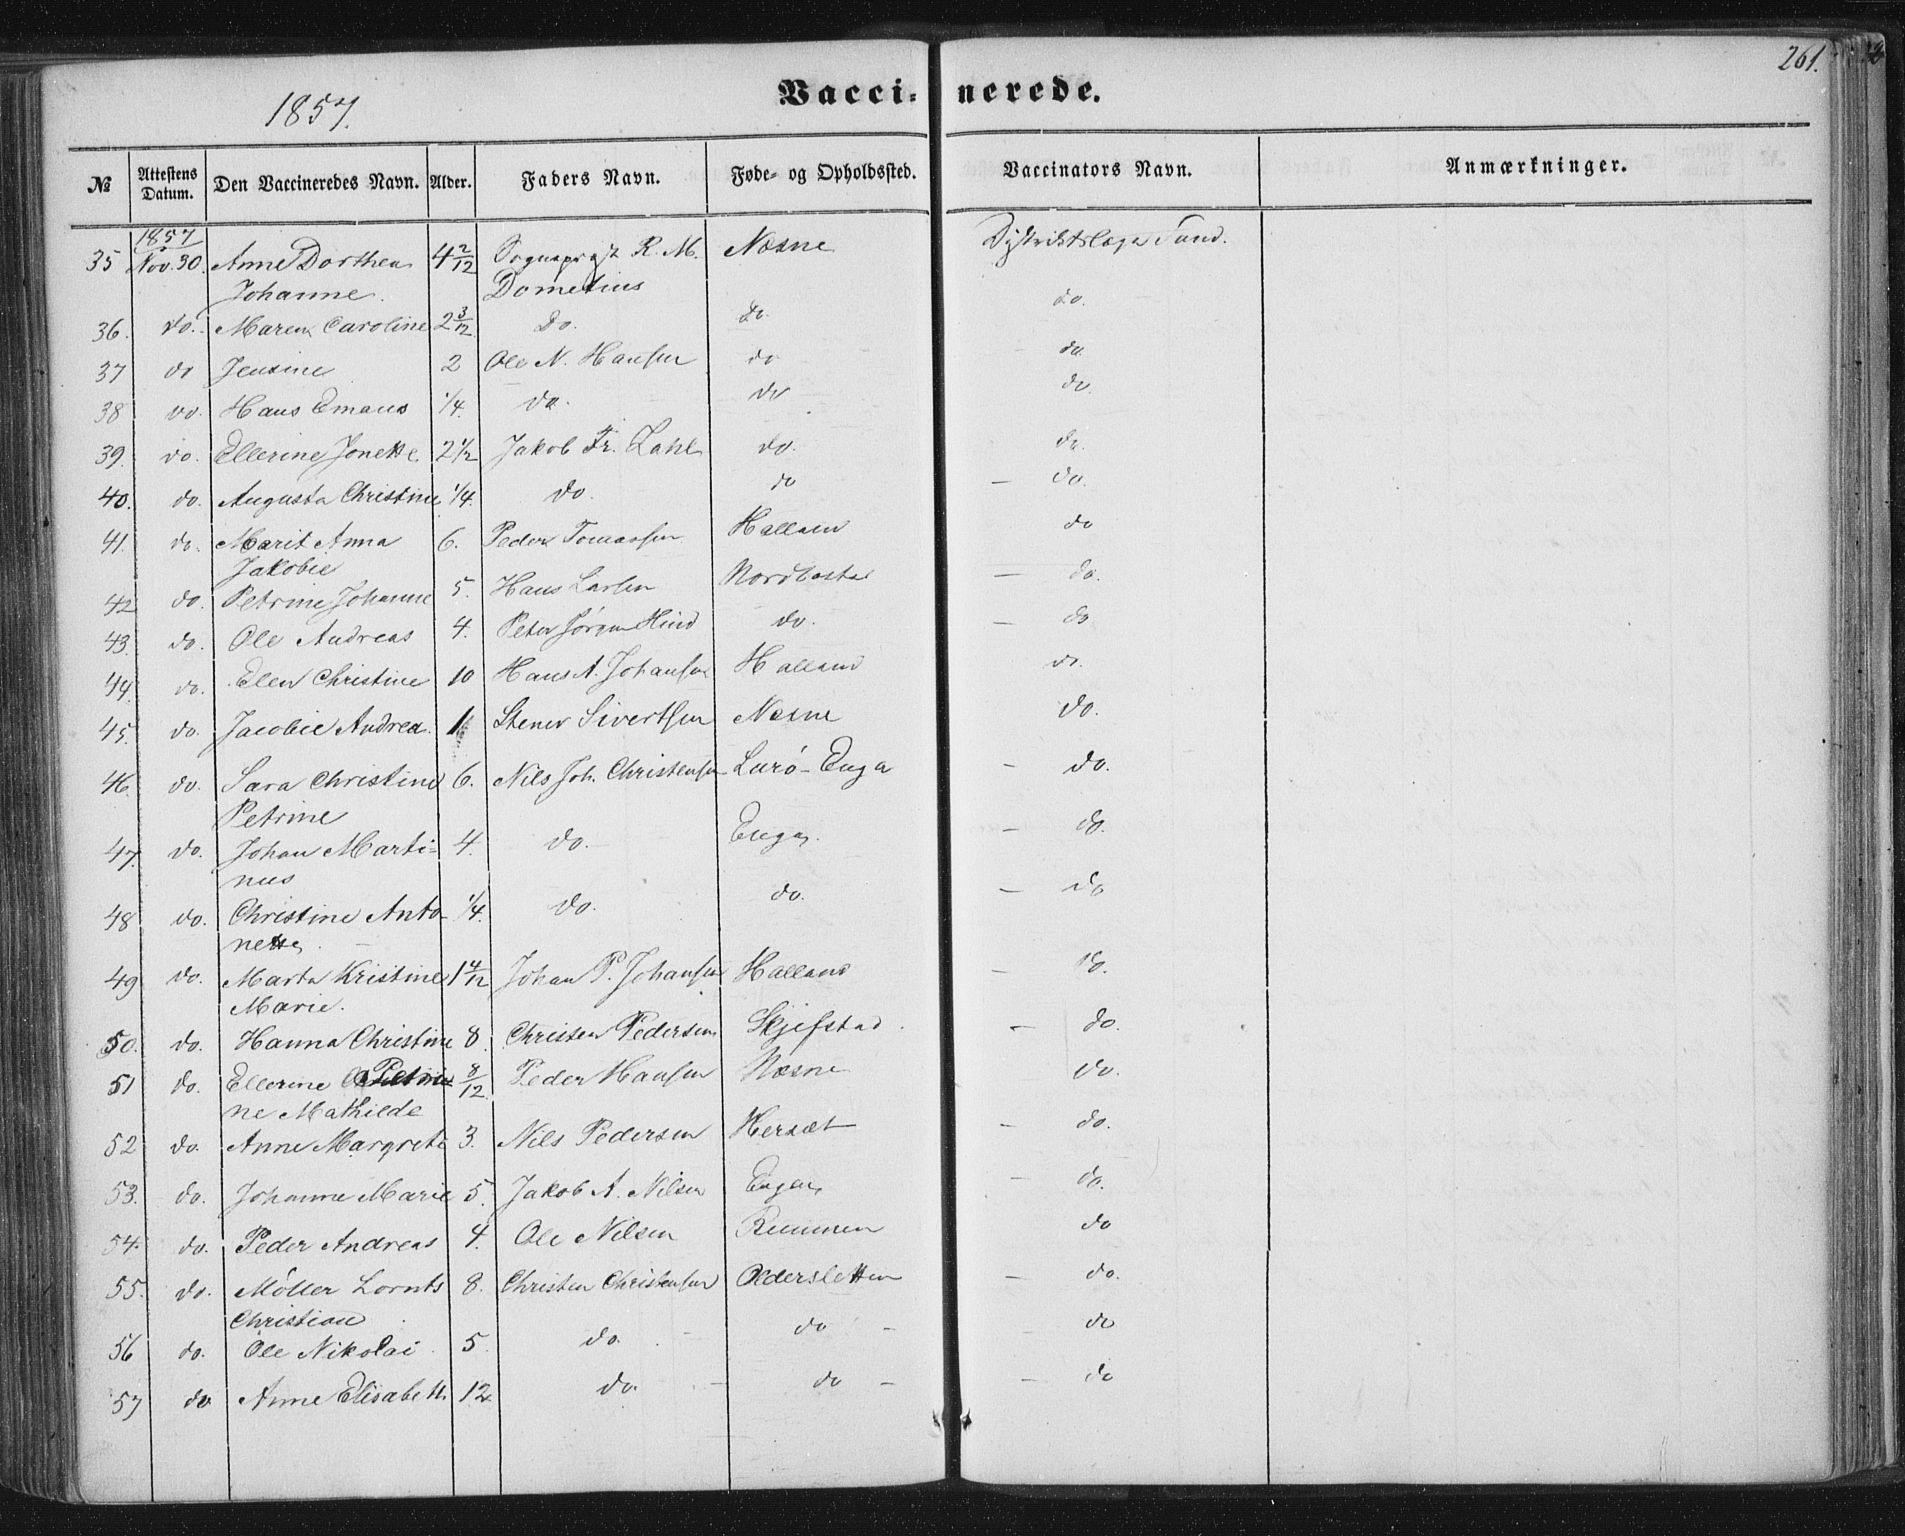 261.
1857.
Vacci- nerede.
№ Attestens Datum. Den Vaccineredes Navn. Alder. Faders Navn. Føde- og Opholdssted. Vaccinators Navn. Anmærkninger.
1857
35 Nov. 30. Anne Dorthea 4 2/12 Sogneprest R. M. Næsne Distriktslæge Sund.
Johanne. Dometius
36. do. Maren Caroline 2 3/12 Do. do. do.
37 do Jensine 2 Ole N. Hansen do do.
38 do. Hans Emans 1/4. do. do do.
39. do. Ellerine Jonette 2 1/2 Jakob Fr. Zahl do. do.
40. do. Augusta Christine 1/4. do. do — do.
41. do. Marit Anna 6. Peder Tomassen Halland do
Jakobie
42 do. Petrine Johanne 5. Hans Larsen Nordbostad — do.
43. do. Ole Andreas 4. Peter Jørgen Hind do. — do
44. do. Elen Christine 10 Hans A. Johansen Halland do.
45. do. Jacobie Andrea. 1 Stener Sivertsen Næsne do.
46. do. Sara Christine 6. Nils Joh. Christensen Lurö-Enga — do.
Petrine
47. do. Johan Marti- 4. do. Enga. — do.
nus
48 do. Christine Anto- 1/4. do. do. — do
nette.
49 do. Marta Kristine 1 4/12 Johan P. Johansen Halland — do.
Marie.
50. do. Hanna Christine 8. Christen Pedersen Skjefstad. — do.
51 do. Ellerine Petri 8/12 Peder Hansen Næsne do.
ne Mathilde
52 do. Anne Margrete 3. Nils Pedersen Hersæt — do.
53. do. Johanne Marie 5. Jakob A. Nilsen Enga — do.
54. do. Peder Andreas 4. Ole Nilsen Remmen do
55. do. Möller Lornts 8. Christen Christensen Oldersletten — do.
Christian
56 do. Ole Nikolai 5. do. — do — — do
57 do Anne Elisabeth. 12. do. — do — — do